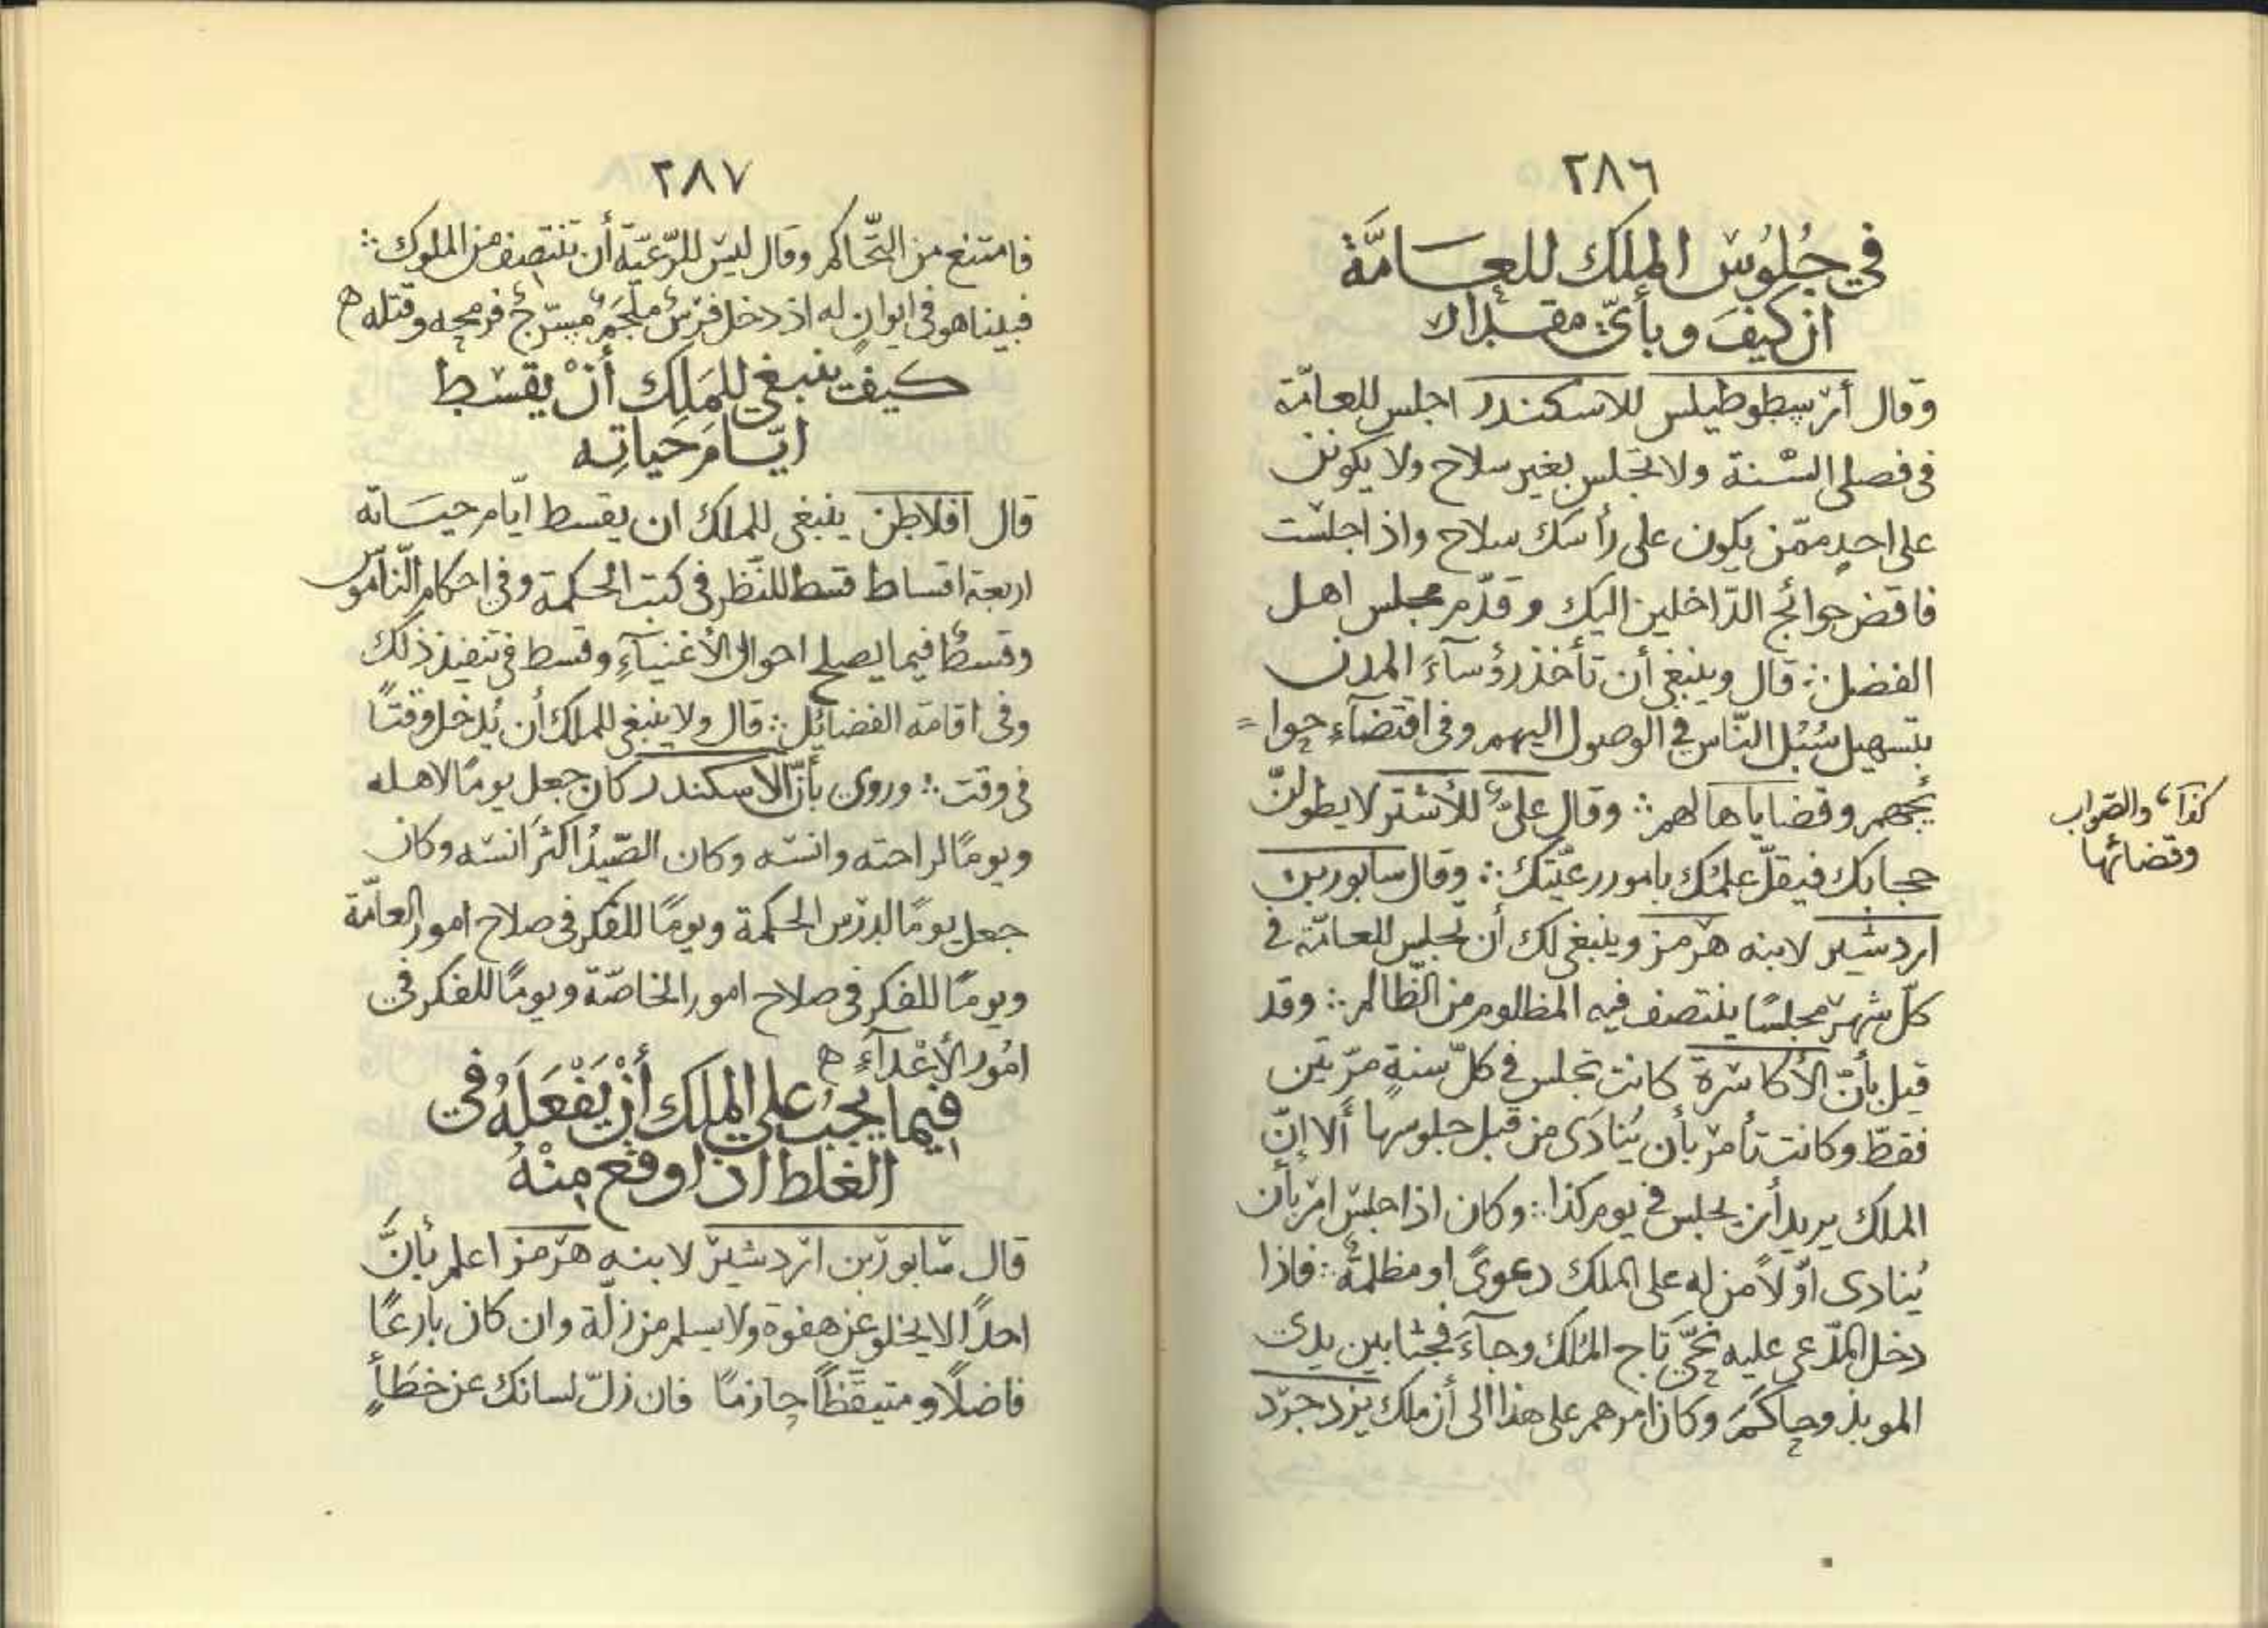 ٢٨٦
في جُلُوس الملك للعَامَّة
ان كيفَ وبأيّ مقدار
وقال أرسطوطيلس للاسكندر اجلس للعامّة
فى فصلى السّنة ولا تجلس بغير سلاح ولا يكونن
على احدٍ ممّن يكون على رأسك سلاح واذا جلست
فاقض حوائج الدّاخلين اليك وقدّم مجلس اهل
الفضل ∴ قال وينبغى أن تأخذ رؤسآءَ المدن
بتسهيل سُبُل النّاس في الوصول اليهم وفى اقتضآء حوا=
ئجهم وقضاياها لهم ∴ وقال علىٌّ للأشتر لا يطولنّ
حجابك فيقلّ علمك بامور رعيّتك ∴ وقال سابور بن
اردشير لابنه هرمز وينبغى لك أن تجلس للعامّة فى
كلّ شهر مجلسًا ينتصف فيه المظلوم من الظّالم ∴ وقد
قيل بأنّ الأكاسرة كانت تجلس في كلّ سنةٍ مرّتين
فقطّ وكانت تأمر بأن يُنادَى من قبل جلوسها ألا إنّ
الملك يريد أن يجلس في يوم كذا ∴ وكان اذا جلس امر بأن
يُنادى اوّلاً من له على الملك دعوىً او مظلمةٌ ∴ فاذا
دخل المدّعى عليه نحّى تاج الملك وجآءَ فجثا بين يدى
الموبذ وحاكَمَ وكان امرهم على هذا الى أن ملك يزدجرد
كذا، والصواب
وقضائها
٢٨٧
فامتنع من التّحاكم وقال ليس للرّعيّة أن تنتصف من الملوك ∴
فبينا هو فى ايوانٍ له اذ دخل فرسٌ ملجَمٌ مسرّجٌ فرمحه وقتله ه
كيف ينبغي للمَلِك أنْ يقسط
ايّامَ حَياتِه
قال افلاطن ينبغى للملك ان يقسط ايّام حيَاته
اربعة اقساط قسط للنّظر فى كتب الحكمة وفى احكام النّاموس
وقسطٌ فيما يصلح احوال الأغنيآءِ وقسط فى تنفيذ ذلك
وفى اقامة الفضائل ∴ قال ولا ينبغى للملك أن يُدخل وقتًا
فى وقت ∴ وروى بأنّ الاسكندر كان جعل يومًا لاهله
ويومًا لراحته وانسه وكان الصّيدُ اكثرَ انسه وكان
جعل يومًا لدرس الحكمة ويومًا للفكر فى صلاح امور العامّة
ويومًا للفكر فى صلاح امور الخاصّة ويومًا للفكر فى
امُور الأعْدآءِ ه
فيما يجبُ على الملك أنْ يَفْعَلَهُ في
الغلط اذا وقع مِنْهُ
قال سابور بن اردشير لابنه هرمز اعلم بأنَّ
احدًا لا يخلو عن هفوة ولا يسلم من زلّة وان كان بارعًا
فاضلًا و متيقّظًا حازمًا فان زلّ لسانك عن خطَأٍ